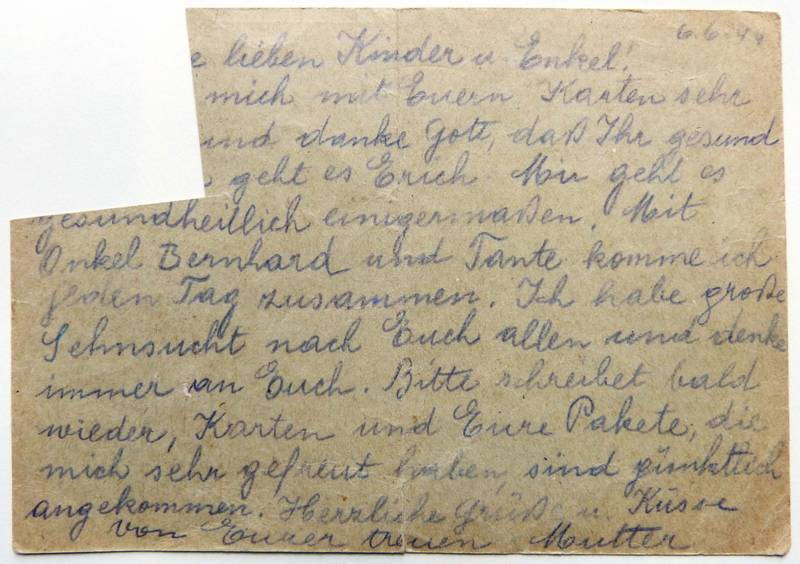 6.6.44
e lieben Kinder u. Enkel!
mich mit Euern Karten sehr
und danke Gott, daß Ihr gesund
geht es Erich. Mir geht es
gesundheitlich einigermaßen. Mit
Onkel Bernhard und Tante komme ich
jeden Tag zusammen. Ich habe große
Sehnsucht nach Euch allen und denke
immer an Euch. Bitte schreibet bald
wieder, Karten und Eure Pakete, die
mich sehr gefreut haben, sind pünktlich
angekommen. Herzliche Grüße u. Küsse
von Eurer treuen Mutter